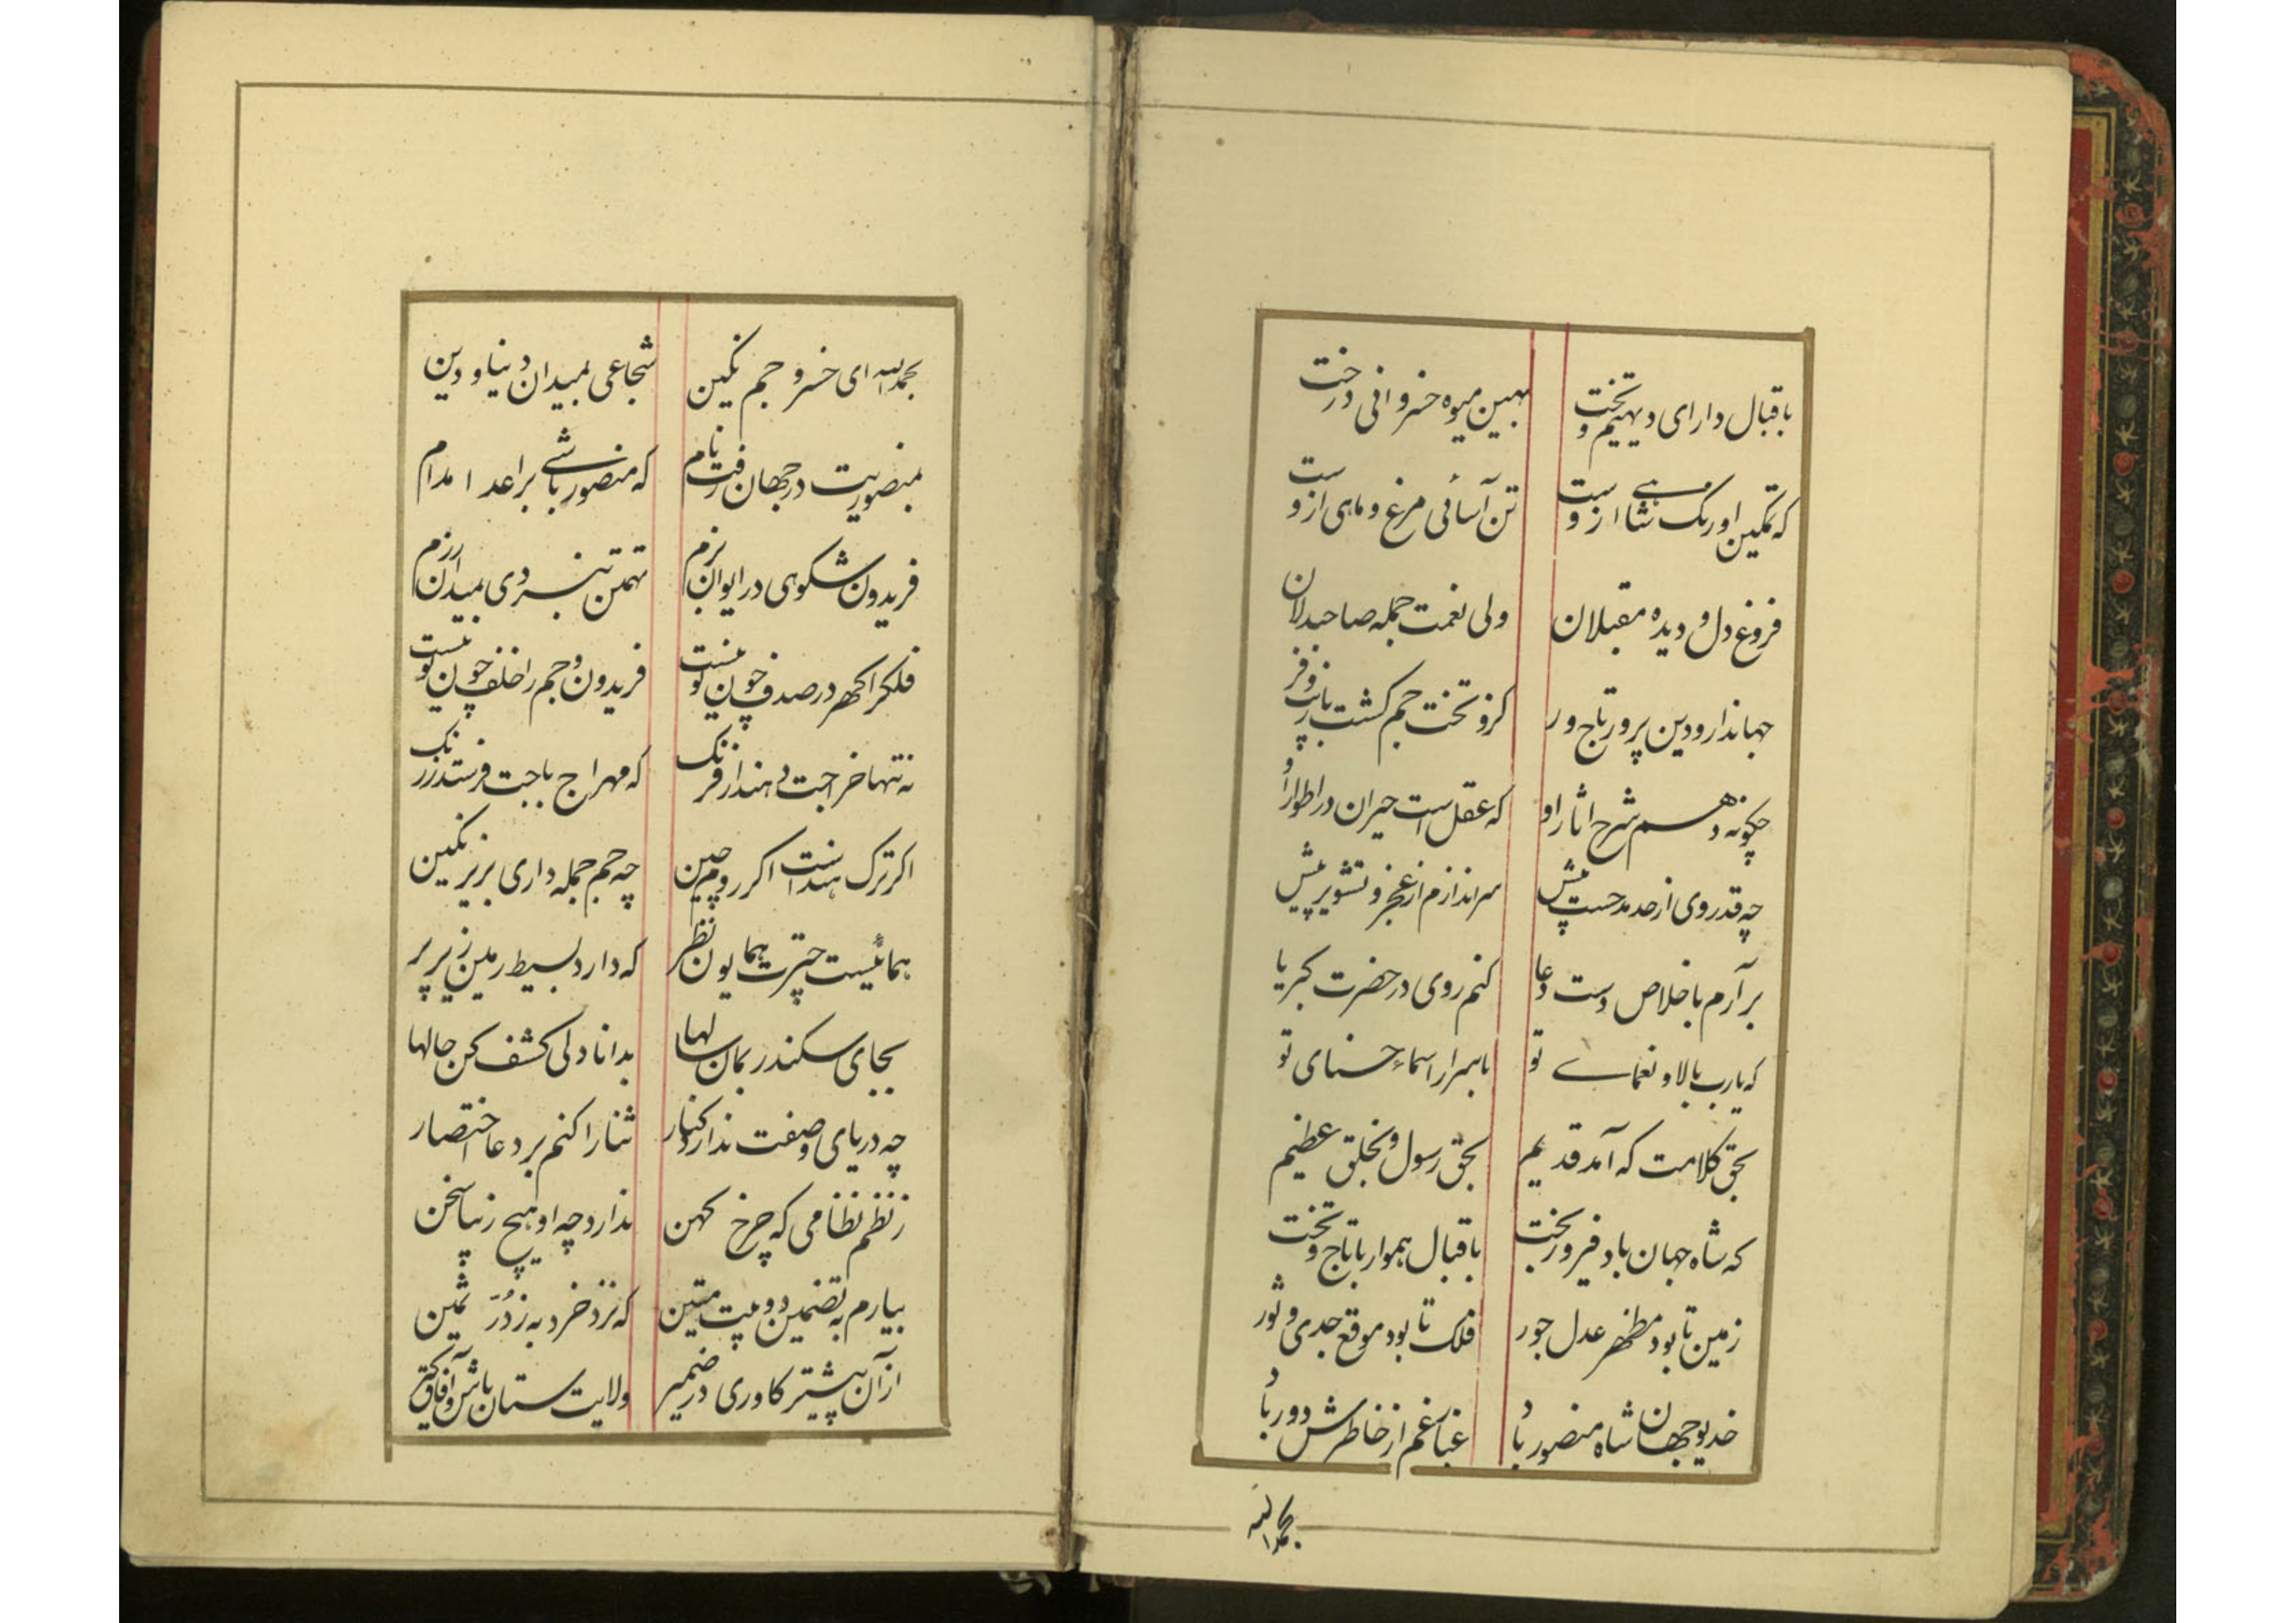 باقبال دارای دیهیم و تخت بهین میوه خسروانی درخت
که تمکین اورنک شاهی ازوست تن آسائی مرغ و ماهی ازوست
فروغ دل و دیده مقبلان ولی نعمت جمله صاحبدلان
جهاندار و دین پرور تاج ور کزو تخت جم کشت با زیب و فر
چکونه دهم شرح اثار او که عقل است حیران در اطوار او
چه قدر وی از حد مدحست بیش سر اندازم از عجز و تشویر پیش
بر آرم باخلاص دست دعا کنم روی در حضرت کبریا
که یارب بالا و نعمای تو باسرار اسماء حسنای تو
بحق کلامت که آمد قدیم بحق رسول و بخلق عظیم
که شاه جهان باد فیروز بخت باقبال هموار با تاج و تخت
زمین تا بود مظهر عدل جور فلک تا بود موقع جدی و ثور
خدیو جهان شاه منصور باد غبار غم از خاطرش دور باد
بحمدالله
بحمدالله ای خسرو جم نکین شجاعی بمیدان دنیا و دین
بمنصوریت در جهان رفت نام که منصور باشی بر اعدا مدام
فریدون شکوهی در ایوان بزم تهمتن نبردی بمیدان رزم
فلک را کهر در صدف چون تو نیست فریدون و جم را خلف چون تو نیست
نه تنها خراجت دهند از فرنک که مهراج باجت فرستد ز زنک
اکر ترک هنداست اکر روم چین چه جم جمله داری بزیر نکین
همائیست چترت همایون نظر که دارد بسیط زمین زیر پر
بجای سکندر بمان سالها بدانا دلی کشف کن حالها
چه دریای وصفت ندارد کنار ثنا را کنم بر دعا اختصار
ز نظم نظامی که چرخ کهن ندارد چه او هیچ زیبا سخن
بیارم به تضمین دو بیت متین که نزد خرد به ز در ثمین
از آن پیشتر کاوری در ضمیر ولایت ستان باش و آفاق کیر